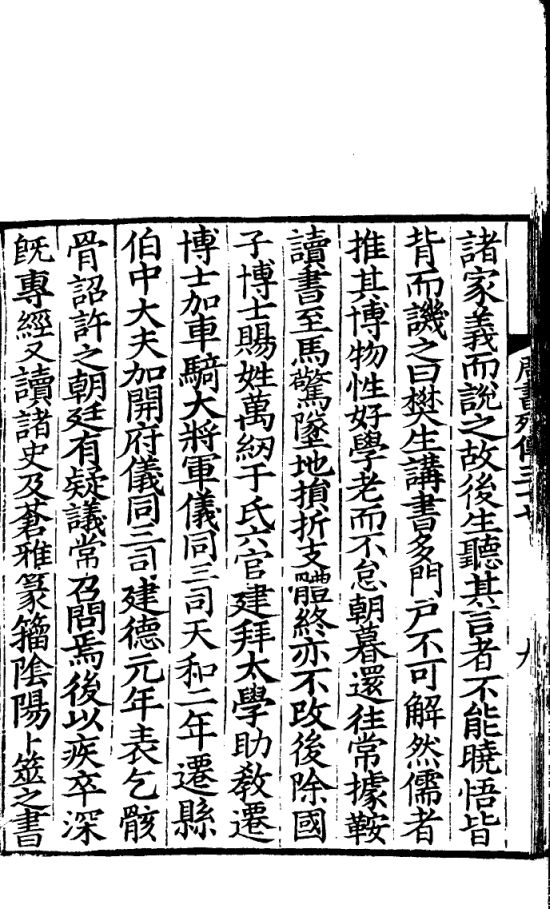 周書列傳三十七 九
諸家義而說之故後生聽其言者不能曉悟皆
背而譏之曰樊生講書多門戸不可解然儒者
推其博物性好學老而不怠朝暮還往常據鞍
讀書至馬驚墜地損折支體終亦不改後除國
子博士賜姓萬紉于氏六官建拜太學助敎遷
博士加車騎大將軍儀同三司天和二年遷縣
伯中大夫加開府儀同三司建德元年表乞骸
骨詔許之朝廷有疑議常召問焉後以疾卒深
旣專經又讀諸史及蒼雅篆籀陰陽卜筮之書